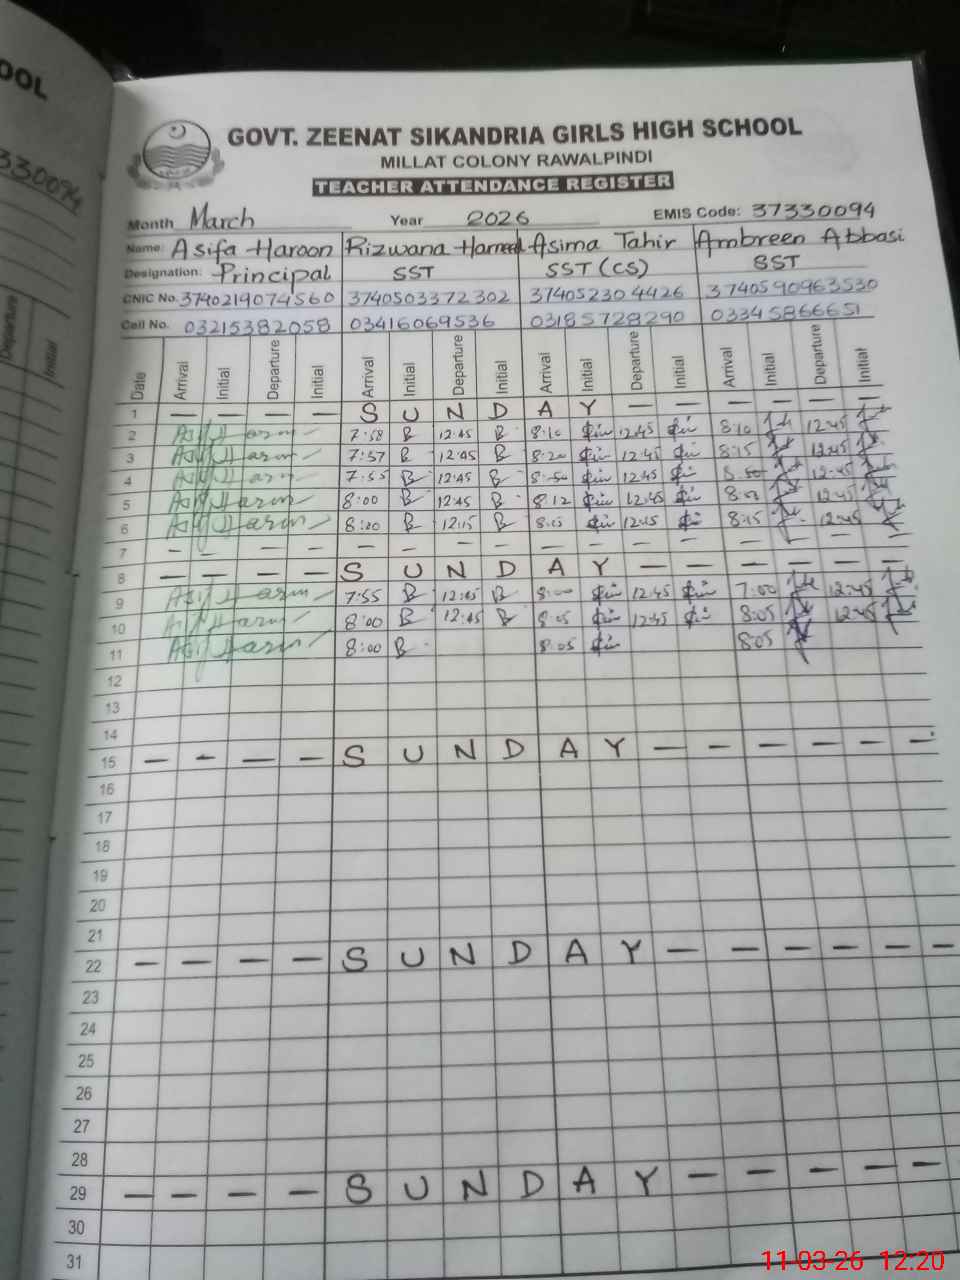 OOL
330094
Departure
Initial
GOVT. ZEENAT SIKANDRIA GIRLS HIGH SCHOOL
MILLAT COLONY RAWALPINDI
TEACHER ATTENDANCE REGISTER
Month March Year 2026 EMIS Code: 37330094
Name: Asifa Haroon Rizwana Hameed Asima Tahir Ambreen Abbasi
Designation: Principal SST SST (CS) SST
CNIC No. 3740219074560 3740503372302 374052304426 3740590963530
Cell No. 03215382058 03416069536 03185728290 03345866651
Date Arrival Initial Departure Initial Arrival Initial Departure Initial Arrival Initial Departure Initial Arrival Initial Departure Initial
1 — — — — S U N D A Y — — — — —
2 7:58 B 12:45 B 8:10 12:45 8:10 12:45
3 7:57 B 12:45 B 8:20 12:45 8:15 12:45
4 7:55 B 12:45 B 12:45 12:45
5 8:00 B 12:45 B 8:12 12:45 12:45
6 8:00 B 12:15 B 12:15 8:15 12:45
7 — — — — — — — — — — — — — — —
8 — — — — S U N D A Y — — — — —
9 7:55 B 12:45 B 8:00 12:45 7:00 12:45
10 8:00 B 12:45 B 8:05 12:45 8:05 12:45
11 8:00 B 8:05 8:05
12
13
14
15 — — — — S U N D A Y — — — — — —
16
17
18
19
20
21
22 — — — — S U N D A Y — — — — — —
23
24
25
26
27
28
29 — — — — S U N D A Y — — — — —
30
31
11-03-26 12:20